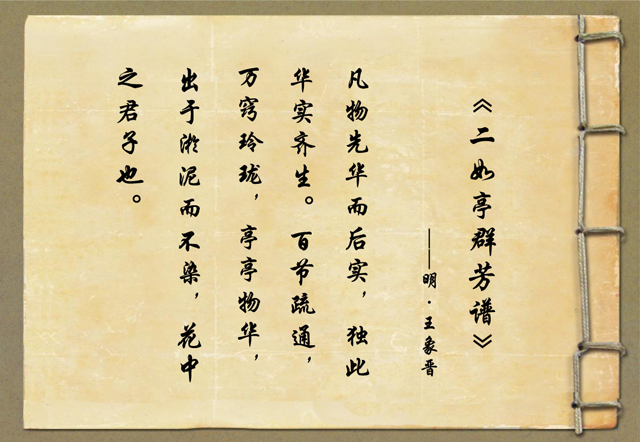 《二如亭群芳谱》
——明·王象晋
凡物先华而后实，独此
华实齐生。百节疏通，
万窍玲珑，亭亭物华，
出于淤泥而不染，花中
之君子也。